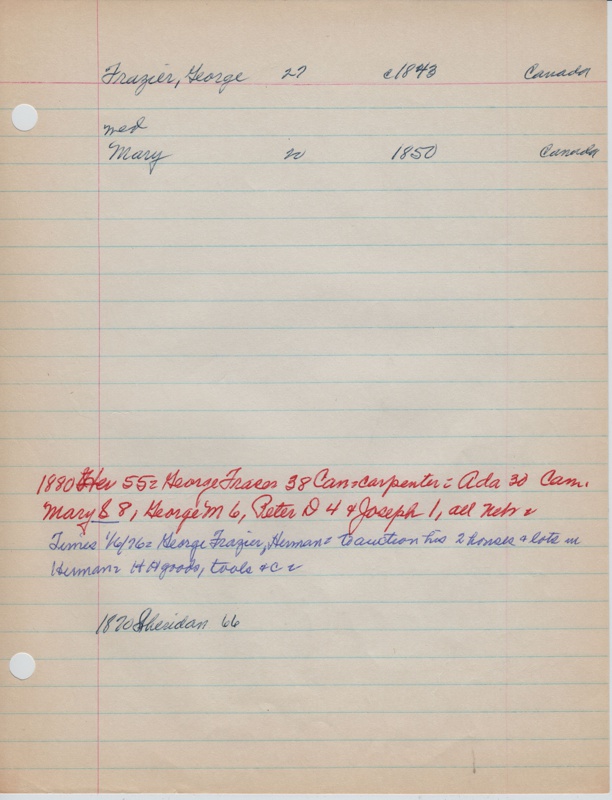 Frazier, George 27 c1843 Canada
med
Mary 20 1850 Canada
1880 Her 55= George Fracos 38 Can=carpenter= Ada 30 Can.
Mary S 8, George M 6, Peter D 4 & Joseph 1, all Neb=
Times 1/6/76= George Frazier, Herman= to auction his 2 houses & lots in
Herman= HHgoods, tools &c=
1870 Sheridan 66